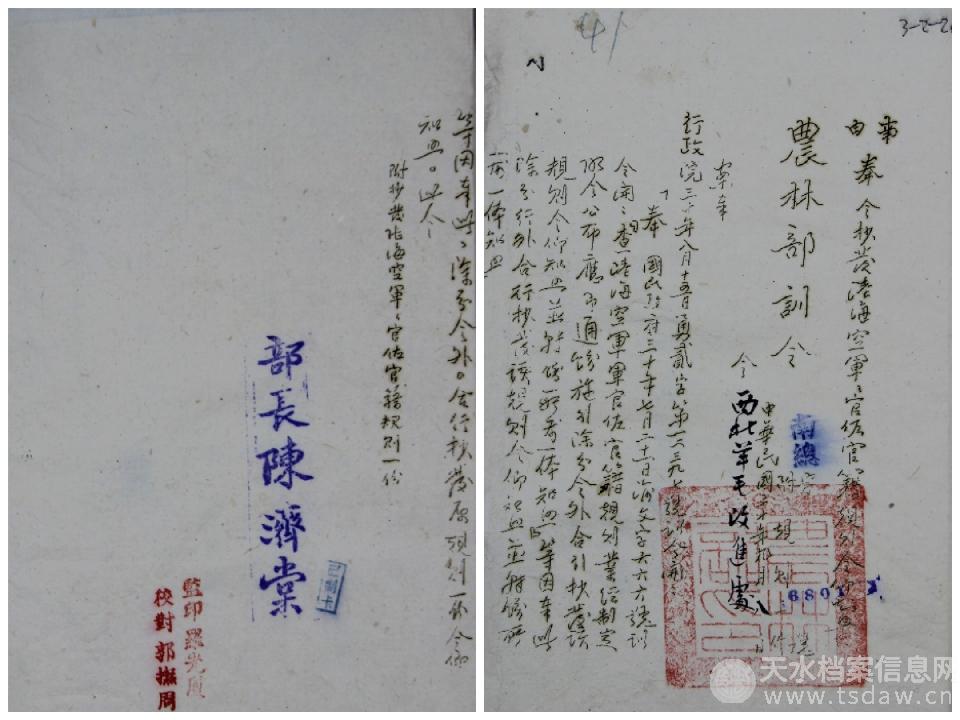 3-2-2
41
事由
奉 令抄發陸海空軍官佐官籍規則令仰知照
附規則
農林部訓令
南總
6801
中華民國三十年 月 日
令 西北羊毛改進處
案奉
行政院三十年八月十五日勇貳字第一二三九七號訓令開
「奉 國民政府三十年七月二十二日渝文字六六六號訓
令開「查陸海空軍軍官佐官籍規則業經制定
明令公布應即通飭施行除分令外合行抄發該
規則令仰知照並轉飭所屬一体知照」等因奉此
除分行外合行抄發該規則令仰知照並轉飭所
屬一体知照
等因奉此、除分令外。合行抄發原規則一份令仰
知照。此令
附抄發陸海空軍、官佐官籍規則一份
部長陳濟棠
已制卡
監印
校對郭撫周
天水档案信息网
www.tsdaw.cn